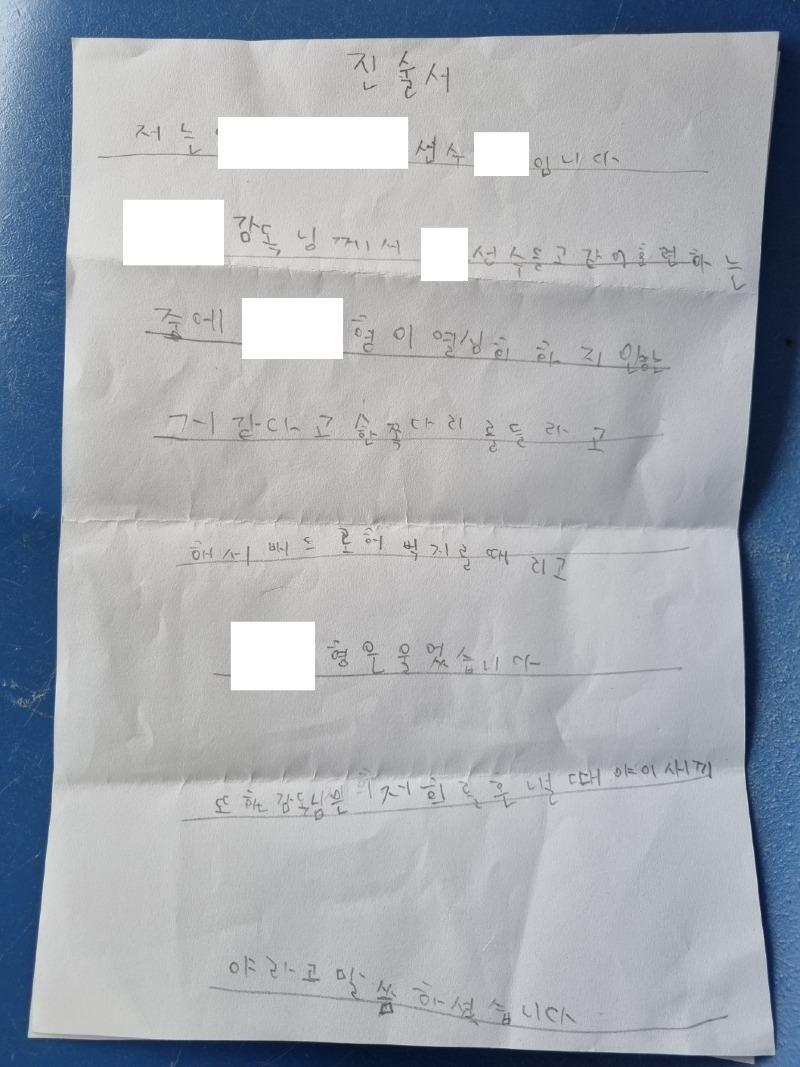 진술서
저는 선수 입니다
감독님께서 선수들고같이훈련하는
중에 형이 열심히 하지 안한
거 같다고 한쪽다리를들라고
해서 배드로허벅지를때리고
형은울었습니다
또한감독님은 저희를혼낼때 야이새끼
야라고말씀하셨습니다